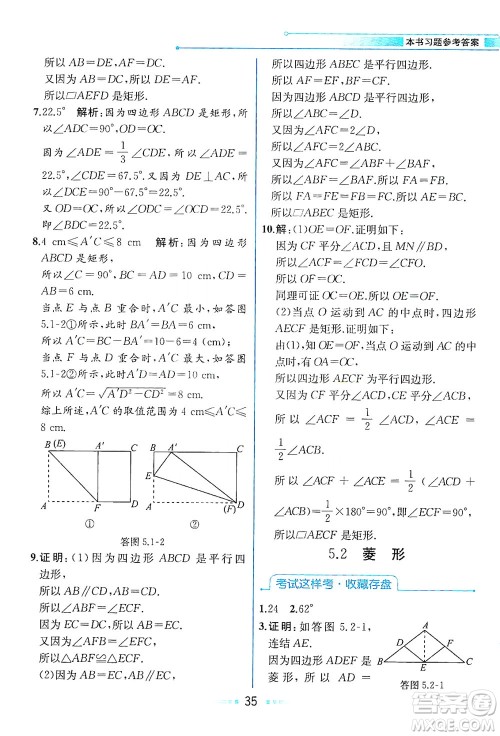 本书习题参考答案
所以四边形 AEFD 是平行四边形.
又因为 AF=DE,
所以□AEFD 是矩形.
7.22.5° 解析:因为四边形 ABCD 是矩形,
所以∠ADC=90°,OD=OC.
因为∠ADE=1/3∠CDE,所以∠ADE=
22.5°,∠CDE=67.5°.又因为 DE⊥AC,
所以∠ECD=∠ODC=22.5°,所以∠BDE=
45°.
8.4 cm≤A′C≤8 cm 解析:因为四边形
ABCD 是矩形,
所以∠C=90°,BC=AD=10 cm,CD=
AB=6 cm.
当点 E 与 B 重合时,A′C 最小,如答图
5.1-2①所示,此时 BA′=BA=6 cm,
所以 A′C=BC-BA′=4 cm.
当点 F 与 D 重合时,A′C 最大,如答图
5.1-2②所示,此时 A′D=AD=10 cm,
所以 A′C=√(A′D²-CD²)=8 cm.
综上所述,A′C 的取值范围为 4 cm≤A′C≤
8 cm.
B(E) A′ C B A′ C
E
A F D A D(F)
① ②
答图 5.1-2
9.证明:(1)因为四边形 ABCD 是平行四
边形,
所以 AB∥CD,AB=CD,
所以∠ABE=∠ECF.
又因为 EC=DC,所以 AB=EC.
(2)因为 AB=EC,AB∥EC,
所以四边形 ABEC 是平行四边形,
所以 FA=FE,FB=FC.
因为四边形 ABCD 是平行四边形,
所以∠ABC=∠D.
又因为∠AFC=2∠D,
所以∠AFC=2∠ABC.
因为∠AFC=∠ABC+∠BAF,
所以∠ABC=∠BAF,所以 FA=FB,
所以 FA=FE=FB=FC,所以 AE=BC.
所以□ABEC 是矩形.
10.解:(1)OE=OF.证明如下:
因为 CF 平分∠ACD,且 MN∥BD,
所以∠ACF=∠FCD=∠CFO,
所以 OF=OC.
同理可证 OC=OE,所以 OE=OF.
(2)当点 O 运动到 AC 的中点时,四边形
AECF 是矩形.证明如下:
由(1),知 OE=OF,又因为 O 是 AC
的中点,所以 OA=OC,
所以四边形 AECF 为平行四边形.
又因为 CE 平分∠ACB,CF 平分∠ACD,
所以∠ACE=1/2∠ACB,∠ACF=
1/2∠ACD,
所以∠ECF=∠ACE+∠ACF=1/2(∠ACB
+∠ACD)=1/2×180°=90°,
所以□AECF 是矩形.
5.2 菱 形
考试这样考·收藏存盘
1.24 2.62°
3.证明:如答图 5.2-1,
连结 AE.
因为四边形 ADEF 是
菱形,所以 AD =
A
D F
B E C
答图 5.2-1
35